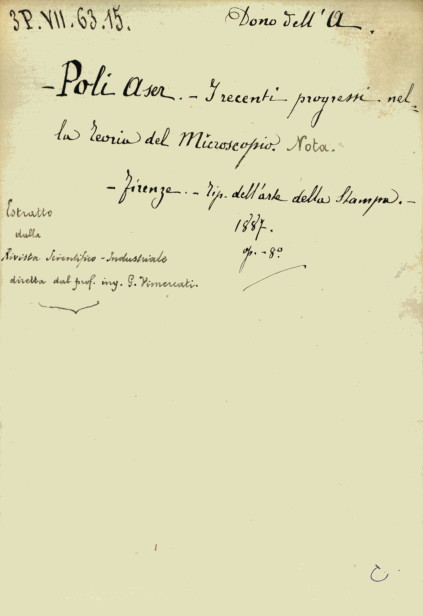 3P.VII.63.15.
Dono dell'A.
- Poli Aser. - I recenti progressi nel-
la Teoria del Microscopio. Nota.
- Firenze. - Tip. dell'arte della Stampa. -
1887.
op. - 8º
Estratto
dalla
Rivista Scientifico - Industriale
diretta dal prof. ing. G. Vimercati.